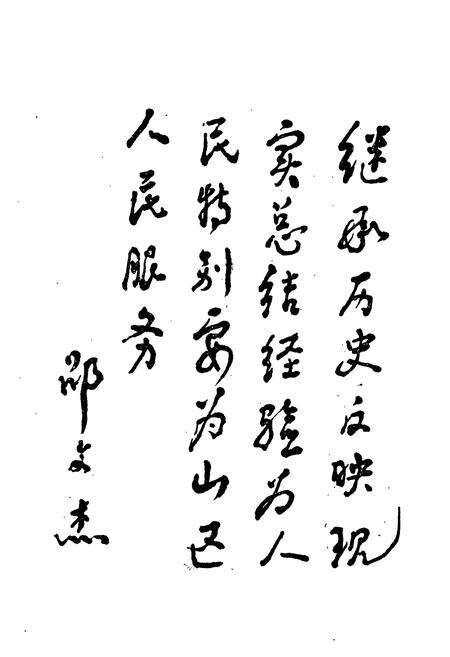 继承历史反映现
实总结经验为人
民特别要为山区
人民服务
邵文杰